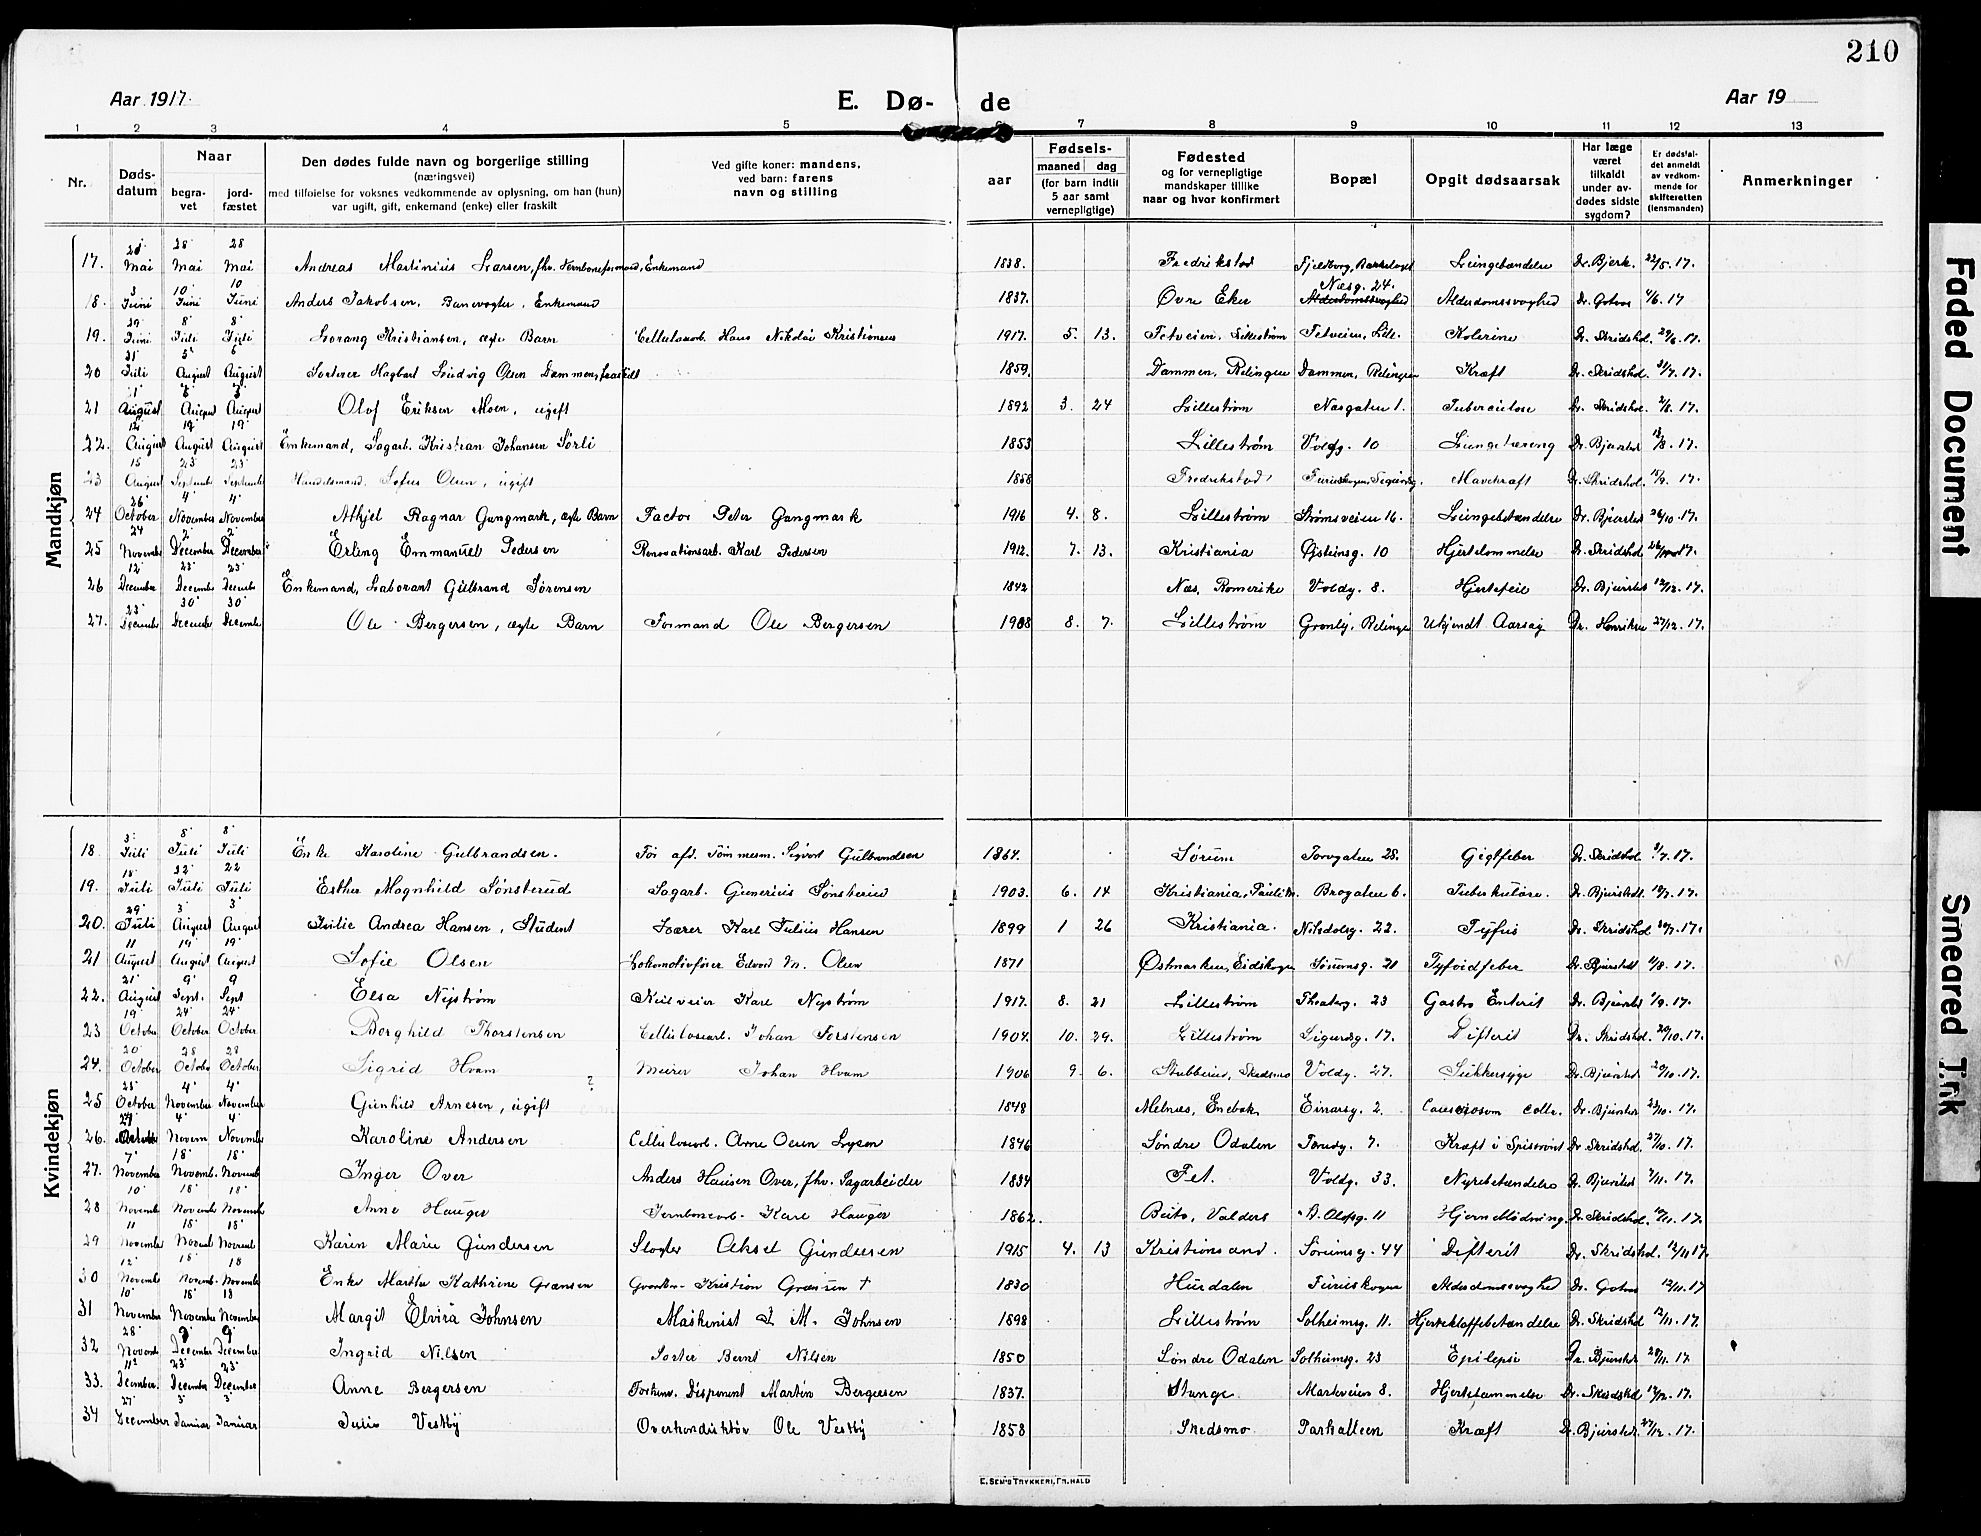 210
Aar 1917.
E. Dø- de
Aar 19
1 2 3 4 5 6 7 8 9 10 11 12 13
Nr.
Døds-datum
Naar
begra-vet
jord-fæstet
Den dødes fulde navn og borgerlige stilling
(næringsvei)
med tilføielse for voksnes vedkommende av oplysning, om han (hun)
var ugift, gift, enkemand (enke) eller fraskilt
Ved gifte koner: mandens,
ved barn: farens
navn og stilling
Fødsels-
aar
maaned dag
(for barn indtil
5 aar samt
vernepligtige)
Fødested
og for vernepligtige
mandskaper tillike
naar og hvor konfirmert
Bopæl
Opgit dødsaarsak
Har læge
været
tilkaldt
under av-
dødes sidste
sygdom?
Er dødsfal-
det anmeldt
av vedkom-
mende for
skifteretten
(lensmanden)
Anmerkninger
Mandkjøn
17. Mai 28 Mai 28 Mai Andreas Martinius Larsen, fhv. Enkemand 1838. Fredrikstad Lungebetændelse Dr. Bjerk. 22/5.17.
18. 3 Juni 10 Juni 10 Juni Anders Jakobsen, Banevogter, Enkemand 1837. Øvre Eker Næsg. 24. Alderdomssvaghed Alderdomssvaghed 4/6.17
19. 29 Juni 8 Juli 8 Juli Lorang Kristiansen, ægte Barn Cellulosearb. Hans Nikolai Kristiansen 1917. 5. 13. Tetveien, Lillestrøm Tetveien, Lille. Kolerine Dr. Skridshol. 29/6.17.
20 31 Juli 5 August 5 August Sorterer Hagbart Ludvig Olsen Dammen, fraskilt 1859. Dammen, Rælingen Dammen, Rælingen Kræft Dr. Skridshol. 31/7.17.
21 1 August August August Olof Eriksen Moen, ugift 1892 3. 24 Lillestrøm Næsgaten 1. Tuberculose Dr. Skridshol. 2/8.17.
22. 12 August 19 August 19 August Enkemand, Sagarb. Kristian Johansen Sørli 1853 Lillestrøm Voldg. 10 Lungetæring Dr. Bjørsted 13/8.17.
23 15 August 23 September 23 September Handelsmand. Sofus Olsen, ugift 1858 Fredrikstad Mavekræft Dr. Skridshol. 17.
24 26 October 4 November 4 November Ragnar Gangmark, ægte Barn Factor Peter Gangmark 1916 4. 8. Lillestrøm Strømsveien 16. Lungebetændelse Dr. Bjørsted 26/10.17.
25 24 November 2 December 2 December Erling Emmanuel Pedersen Renovationsarb. Karl Pedersen 1912. 7. 13. Kristiania Øisteinsg. 10 Hjertelammelse Dr. Skridshol 17.
26 12 December 23 December 23 December Enkemand, Laborant Gulbrand Sørensen 1842 Næs, Romerike Voldg. 8. Hjertefeil Dr. Bjørsted 12/12.17.
27. 23 December 30 December 30 December Ole Bergersen, ægte Barn Formand Ole Bergersen 1908 8. 7. Lillestrøm Grønly, Rælingen Ukjendt Aarsag Dr. Henriksen 27/12.17.
Kvindekjøn
18. 3 Juli 8 Juli 8 Juli Enke Karoline Gulbrandsen. For afd. Tømmerm. Sigvart Gulbrandsen 1864. Sørum Torvgaten 28. Gigtfeber Dr. Skridshol 3/7.17.
19. 18 Juli 22 Juli 22 Juli Esther Magnhild Sønsterud Sagarb. Gunerius Sønsterud 1903. 6. 14 Kristiania, Paulus m. Brogaten 6. Tuberkulose. Dr. Bjørstedt. 17.
20. 29 Juli 3 August 3 August Julie Andrea Hansen, Student Lærer Karl Julius Hansen 1899 1 26 Kristiania. Nitedalsg. 22. Tyfus Dr. Skridshol 17.
21 11 August 19 August 19 August Sofie Olsen Lokomotivfører Edvard M. Olsen 1871 Østmarken, Eidskogen Sørumsg. 21 Tyfoidfeber Dr. Bjørstedt 17.
22. 21 August 9 Sept. 9 Sept Elsa Nystrøm Karl Nystrøm 1917. 8. 21 Lillestrøm Theaterg. 23 Gastro Enterit Dr. Bjørsted 1/9.17.
23 19 October 24 October 24 October Borghild Thorstensen Cellulosearb. Johan Torstensen 1904. 10. 29. Lillestrøm Sigurdsg. 17. Difterit Dr. Skridshol. 20/10.17.
24. 20 October 28 October 28 October Sigrid Hvam ? Meier Johan Hvam 1906 9. 6. Stubberud, Skedsmo Voldg. 27. Sukkersyge Dr. Bjørsted 20/10.17.
25 October 4 November 4 November Gunhild Arnesen, ugift 1848 Melnes, Enebak. Einarsg. 2. Dr. Bjørsted 23/10.17.
26. 27 4 Novem 4 November Karoline Andersen Cellulosearb. 1846 Søndre Odalen 7. Kræft i Spiserøret Dr. Skridshol. 27/10.17.
27. 7 November 18 Novemb. 18 Novemb Inger Over Anders Hansen Over, fhv. Sagarbeider 1834 Fet. Voldg. 33. Nyrebetændelse Dr. Bjørsted 7/11.17.
28 10 Novemb 18 Novemb 18 November Anne Hauger Jernbanearb. Karl Hauger 1862. Beito, Valders St. Olafsg. 11 Hjerneblødning Dr. Skridshol. 17.
29 11 November 18 Novemb 18 November Karen Marie Gundersen Slagter Aksel Gundersen 1915 4. 13 Kristiansand. Sørumsg. 44 Difterit Dr. Skridshol. 12/11 17.
30 12 Novemb 18 Novemb. 18 November Enke Marthe Kathrine Grænsen Kristian Grænsen † 1830 Hurdalen Furuskogen Alderdomssvaghed 12/11.17
31 10 November 18 November 18 November Margit Elvira Johnsen Maskinist J. M. Johnsen 1898 Lillestrøm Solheimsg. 11. Hjerteklaffebetændelse Dr. Skridshol 12/11.17.
32 28 Novemb 9 December 9 December Ingrid Nilsen Sorter Bernt Nilsen 1850 Søndre Odalen Solheimsg. 23 Epilepsi Dr. Bjørsted 17.
33. December. 23 December 23 December Anne Bergersen Forhenv. Disponent Martin Bergersen 1837. Stange Markveien 8. Hjertelammelse Dr. Skridshol 12/12.17.
34 27 December 3 Januar 3 Januar Julie Vestby Overkonduktør Ole Vestby 1858 Skedsmo Parkalleen Kræft Dr. Bjørsted. 27/12.17.
E. SEM'S TRYKKERI, FR.HALD
Faded Document
Smeared Ink